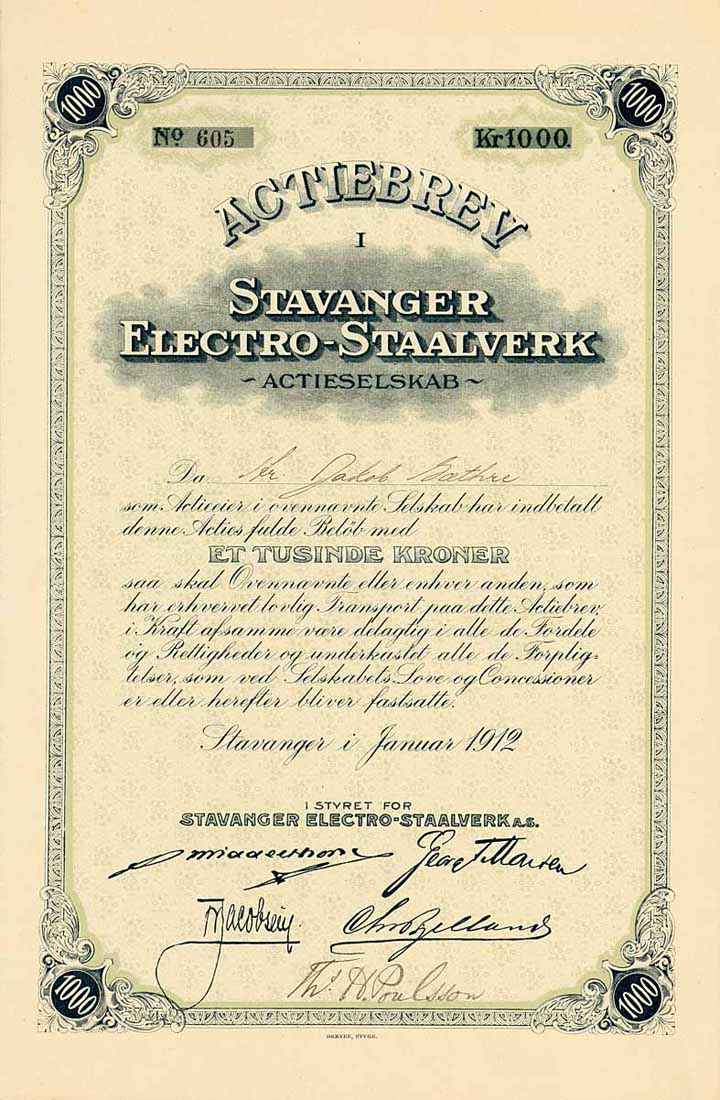 1000 1000
No 605 Kr 1000.
ACTIEBREV
I
STAVANGER
ELECTRO-STAALVERK
~ ACTIESELSKAB ~
Da Hr. Jakob Sæthre
som Actieeier i ovennævnte Selskab har indbetalt
denne Acties fulde Beløb med
ET TUSINDE KRONER
saa skal Ovennævnte eller enhver anden, som
har erhvervet lovlig Transport paa dette Actiebrev,
i Kraft af samme være delagtig i alle de Fordele
og Rettigheder og underkastet alle de Forplig-
telser, som ved Selskabets Love og Concessioner
er eller herefter bliver fastsatte.
Stavanger i Januar 1912
I STYRET FOR
STAVANGER ELECTRO-STAALVERK A.S.
Middelthon
Jacobsen Chr Bjelland
Th. H. Poulsson
1000 1000